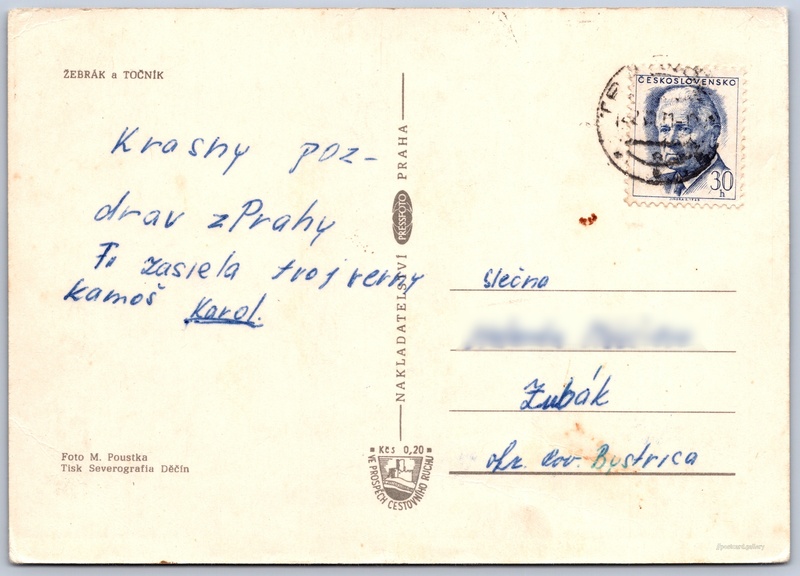 ŽEBRÁK a TOČNÍK
Krasny poz-
drav z Prahy
Ti zasiela tvoj verny
kamoš Karol.
Foto M. Poustka
Tisk Severografia Děčín
NAKLADATELSTVÍ PRESSFOTO PRAHA
Kčs 0,20
VE PROSPĚCH CESTOVNÍHO RUCHU
ČESKOSLOVENSKO
30 h
slečna
Zubák
okr. Pov. Bystrica